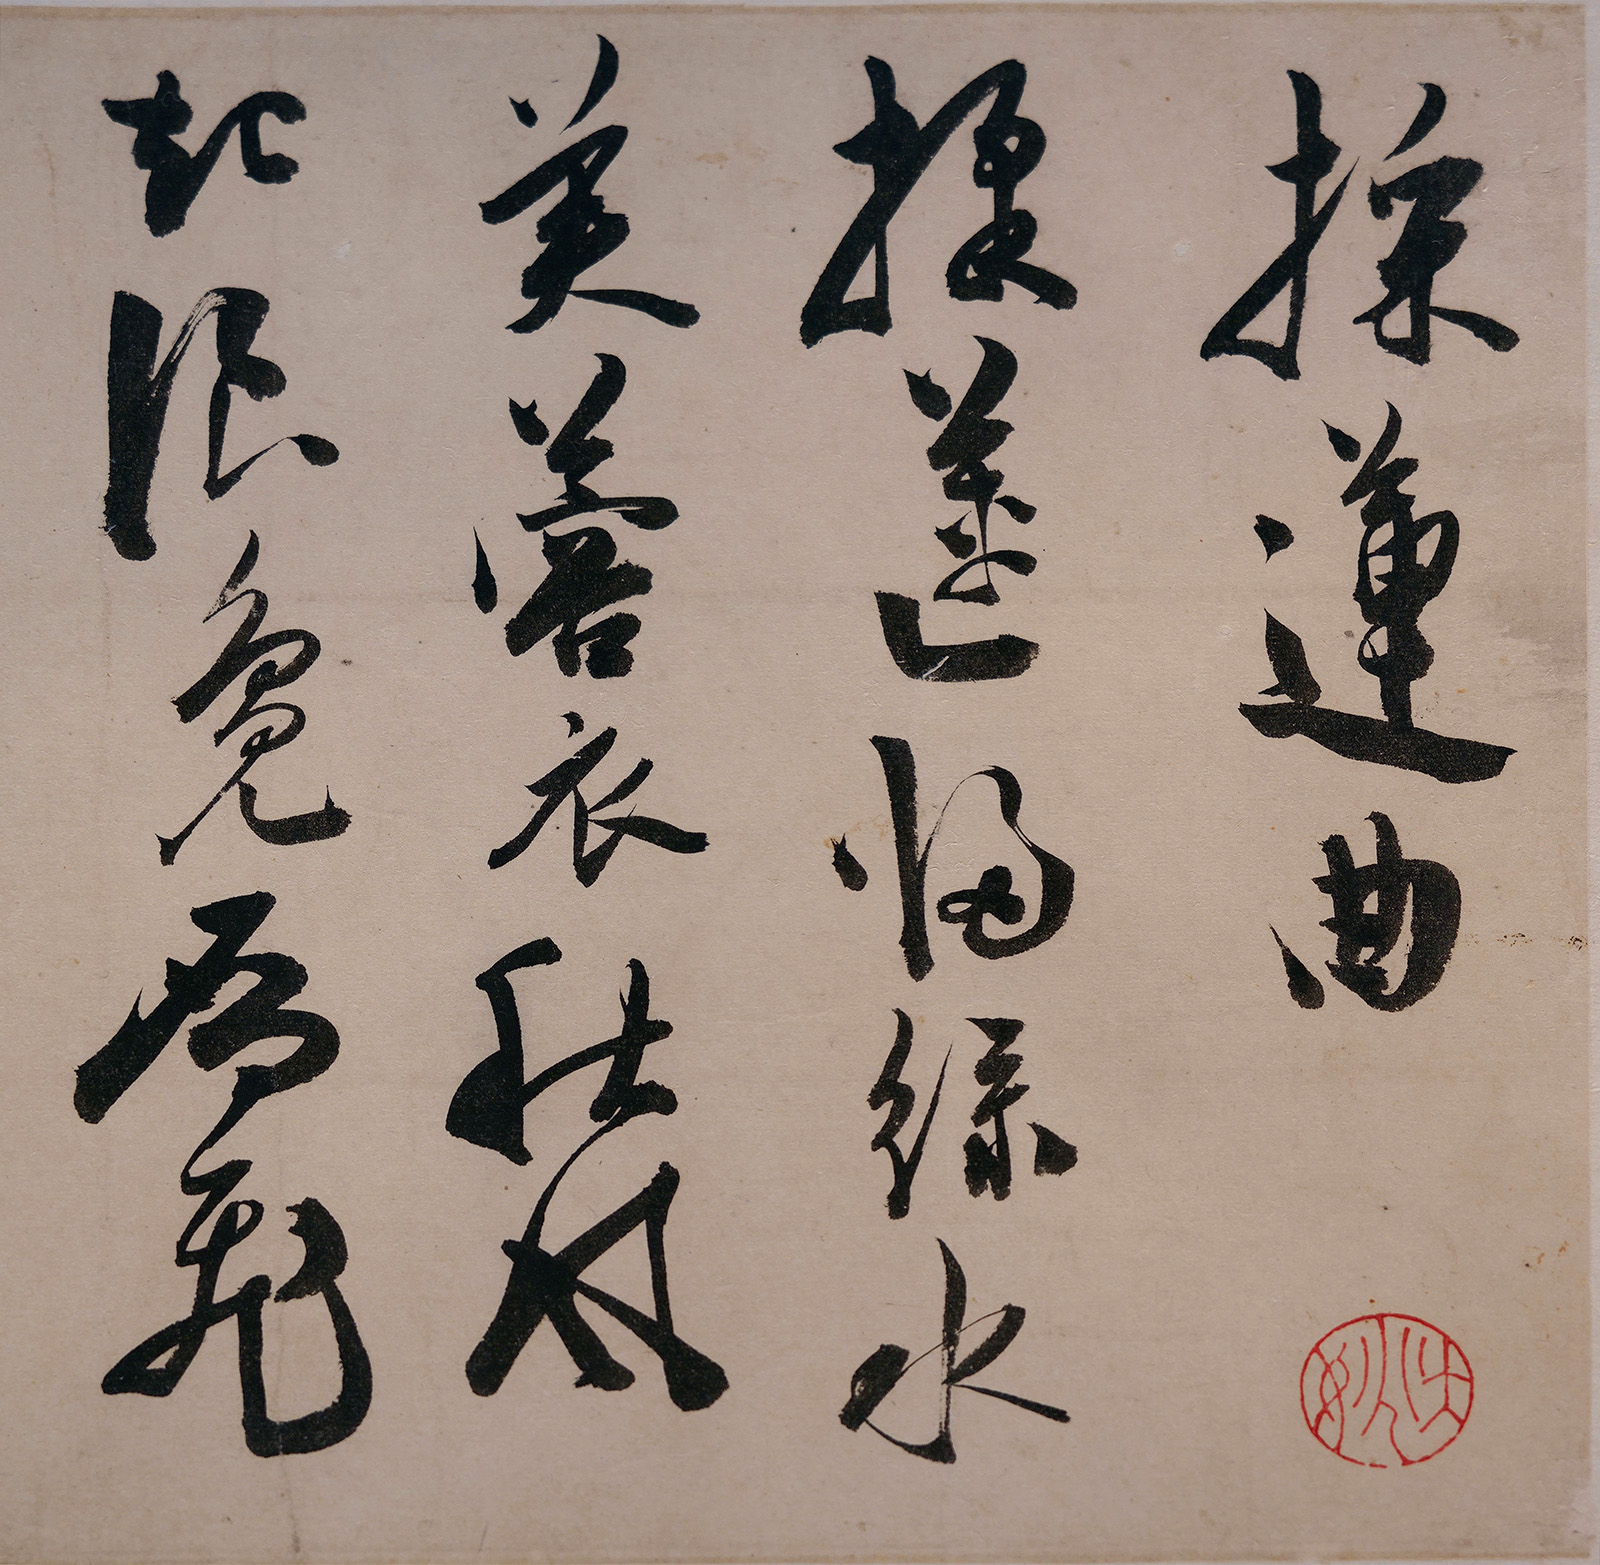 採蓮曲
採蓮歸綠水
芙蓉衣秋風
起浪鳧雁飛